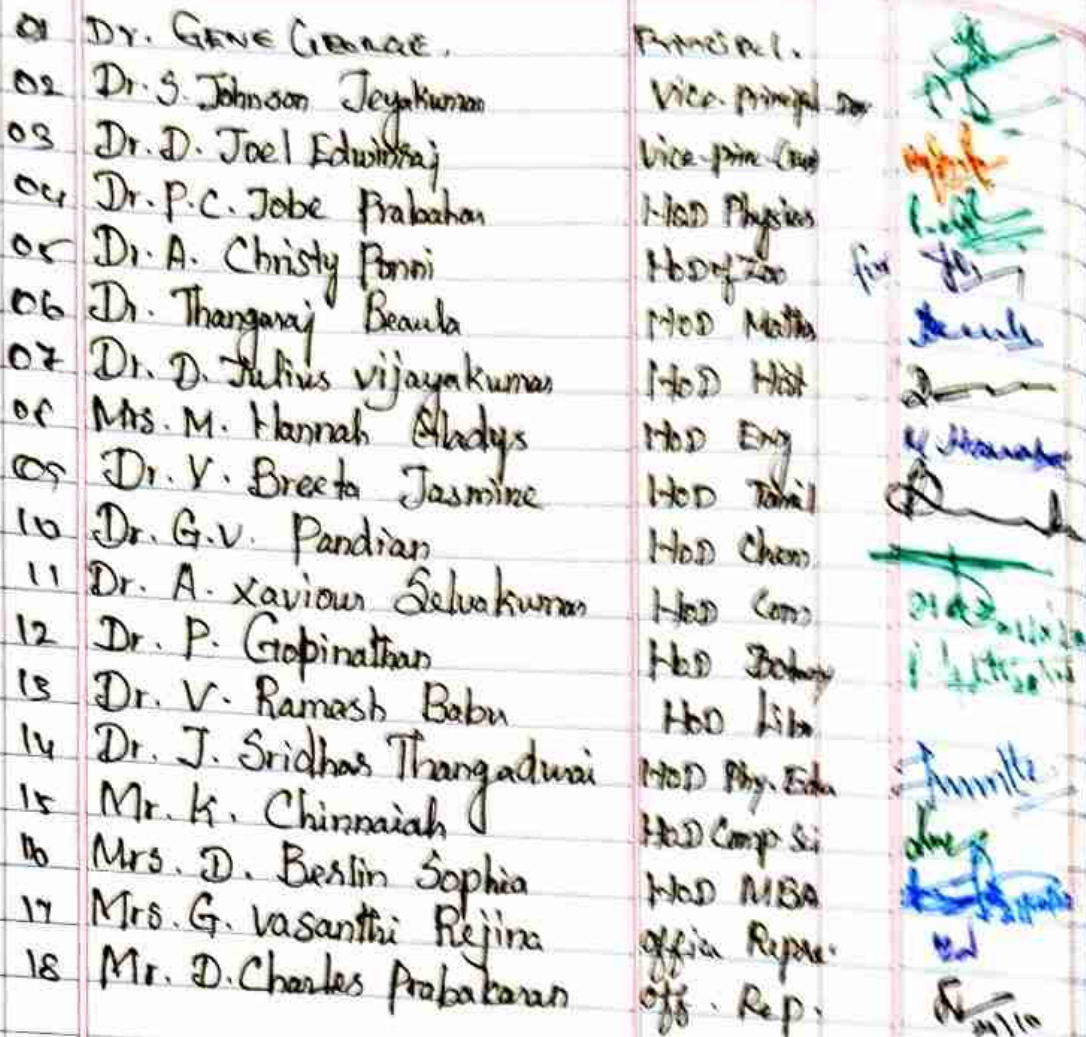 01 Dr. GENE GEORGE. Principal.
02 Dr. S. Johnson Jeyakumar Vice-principal
03 Dr. D. Joel Edwinraj Vice-prin
04 Dr. P.C. Jobe Prabahar HoD Physics
05 Dr. A. Christy Ponni HoD of Zoo for
06 Dr. Thangaraj Beaula HoD Maths
07 Dr. D. Julius vijayakumar HoD Hist
08 Mrs. M. Hannah Gladys HoD Eng
09 Dr. V. Breeta Jasmine HoD Tamil
10 Dr. G.V. Pandian HoD Chem
11 Dr. A. Xaviour Selvakumar HoD Com
12 Dr. P. Gopinathan HoD Botany
13 Dr. V. Ramash Babu HoD Libr
14 Dr. J. Sridhar Thangadurai HoD Phy. Edu
15 Mr. K. Chinnaiah HoD Comp Sci
16 Mrs. D. Beslin Sophia HoD MBA
17 Mrs. G. Vasanthi Rejina Office Repre.
18 Mr. D. Charles Prabakaran off. Rep.